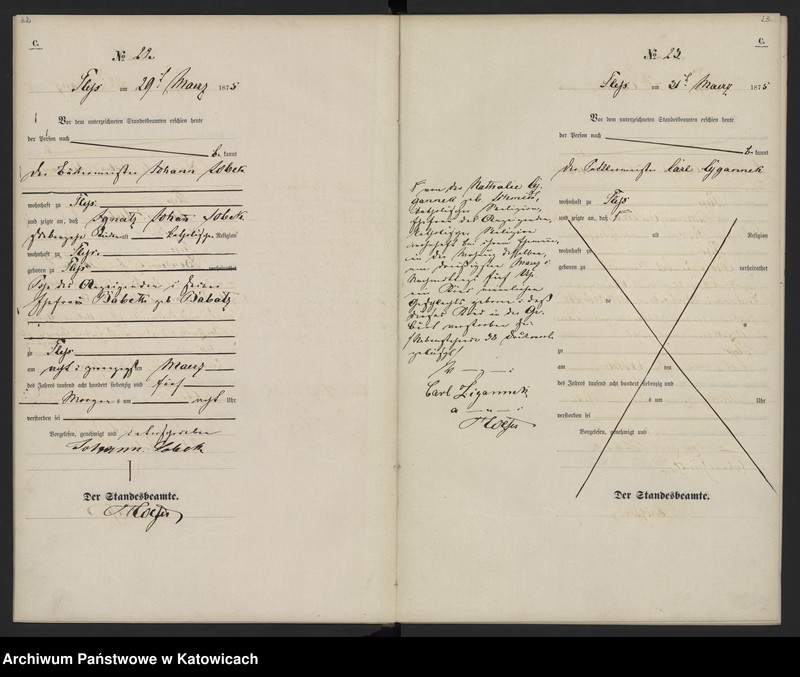 22
C.
№ 22.
Pless am 29t März 1875
Vor dem unterzeichneten Standesbeamten erschien heute
der Person nach
be kannt
der Böttchermeister Johann Sobek
wohnhaft zu Pless
und zeigte an, daß Ignatz Johann Sobek
katholischer Religion
wohnhaft zu Pless
geboren zu Pless verheirathet
Sohn des Anzeigenden &
Ehefrau Babette geb
zu Pless
am acht & zwanzigsten März
des Jahres tausend acht hundert siebenzig und fünf
Morgens um acht Uhr
verstorben sei
Vorgelesen, genehmigt und unterschrieben
Johann Sobek
Der Standesbeamte.
23
C.
№ 23
Pless am 31t März 1875
Vor dem unterzeichneten Standesbeamten erschien heute
der Person nach
be kannt
der Sattlermeister Carl Cygannek
wohnhaft zu Pless
und zeigte an, daß
alt Religion
wohnhaft zu
geboren zu verheirathet
zu
am ten
des Jahres tausend acht hundert siebenzig und
um Uhr
verstorben sei
Vorgelesen, genehmigt und
Der Standesbeamte.
von der Nathalie Cy-
gannek geb
katholischer Religion,
Ehefrau des Anzeigenden,
katholischer Religion
wohnhaft bei ihrem Ehemanne,
in der Wohnung desselben,
am dreißigsten März
Nachmittags fünf Uhr
ein Kind männlichen
Geschlechts geboren & daß
dieses Kind in der Ge-
burt verstorben sei
v. g. u.
Carl Zigannek
a. u. s.
Archiwum Państwowe w Katowicach